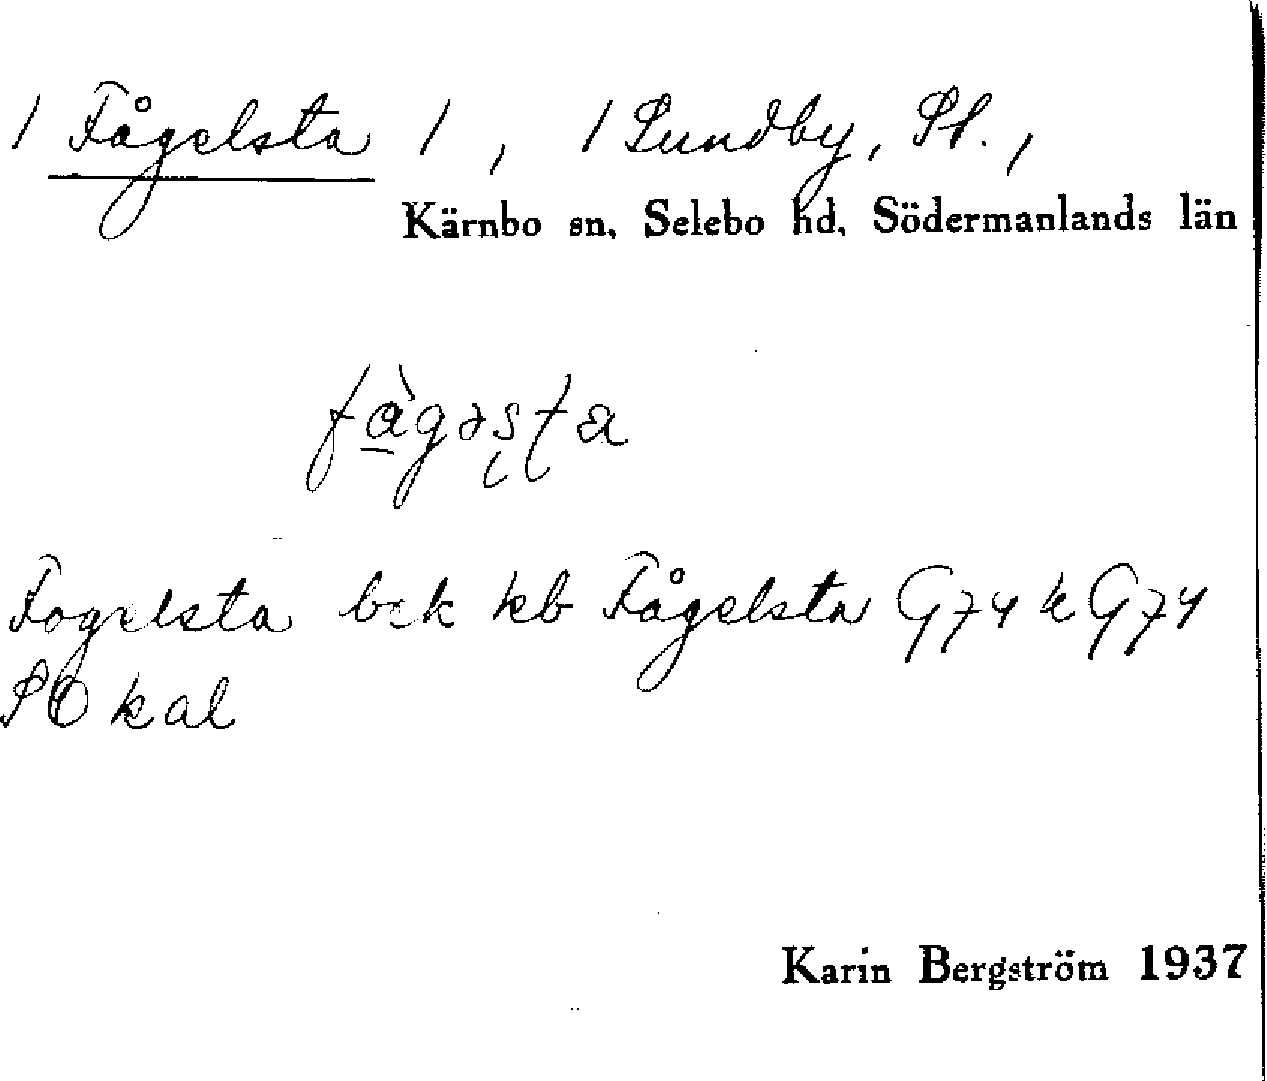 / Fågelsta /, / Sundby, St.,
Kärnbo sn, Selebo hd, Södermanlands län
fàgəsta
Fogelsta bek kb Fågelsta G74 k G74
SO kal
Karin Bergström 1937